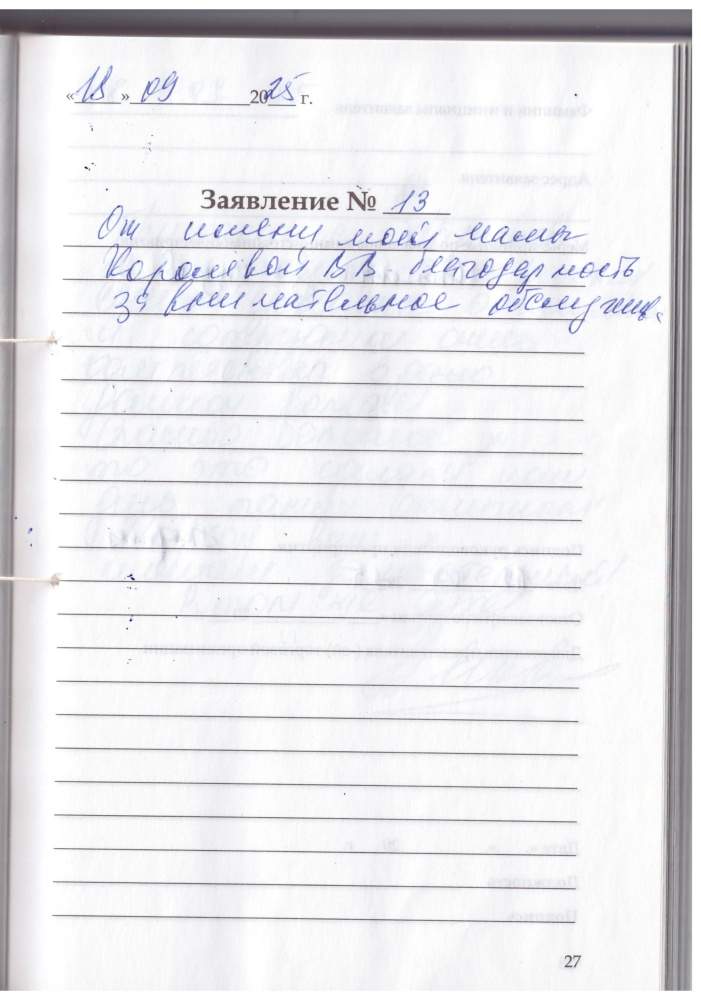 «18» 09 2025 г.
Заявление № 13
От имени моей мамы
Королевой В В благодарность
за внимательное обслужив.
27